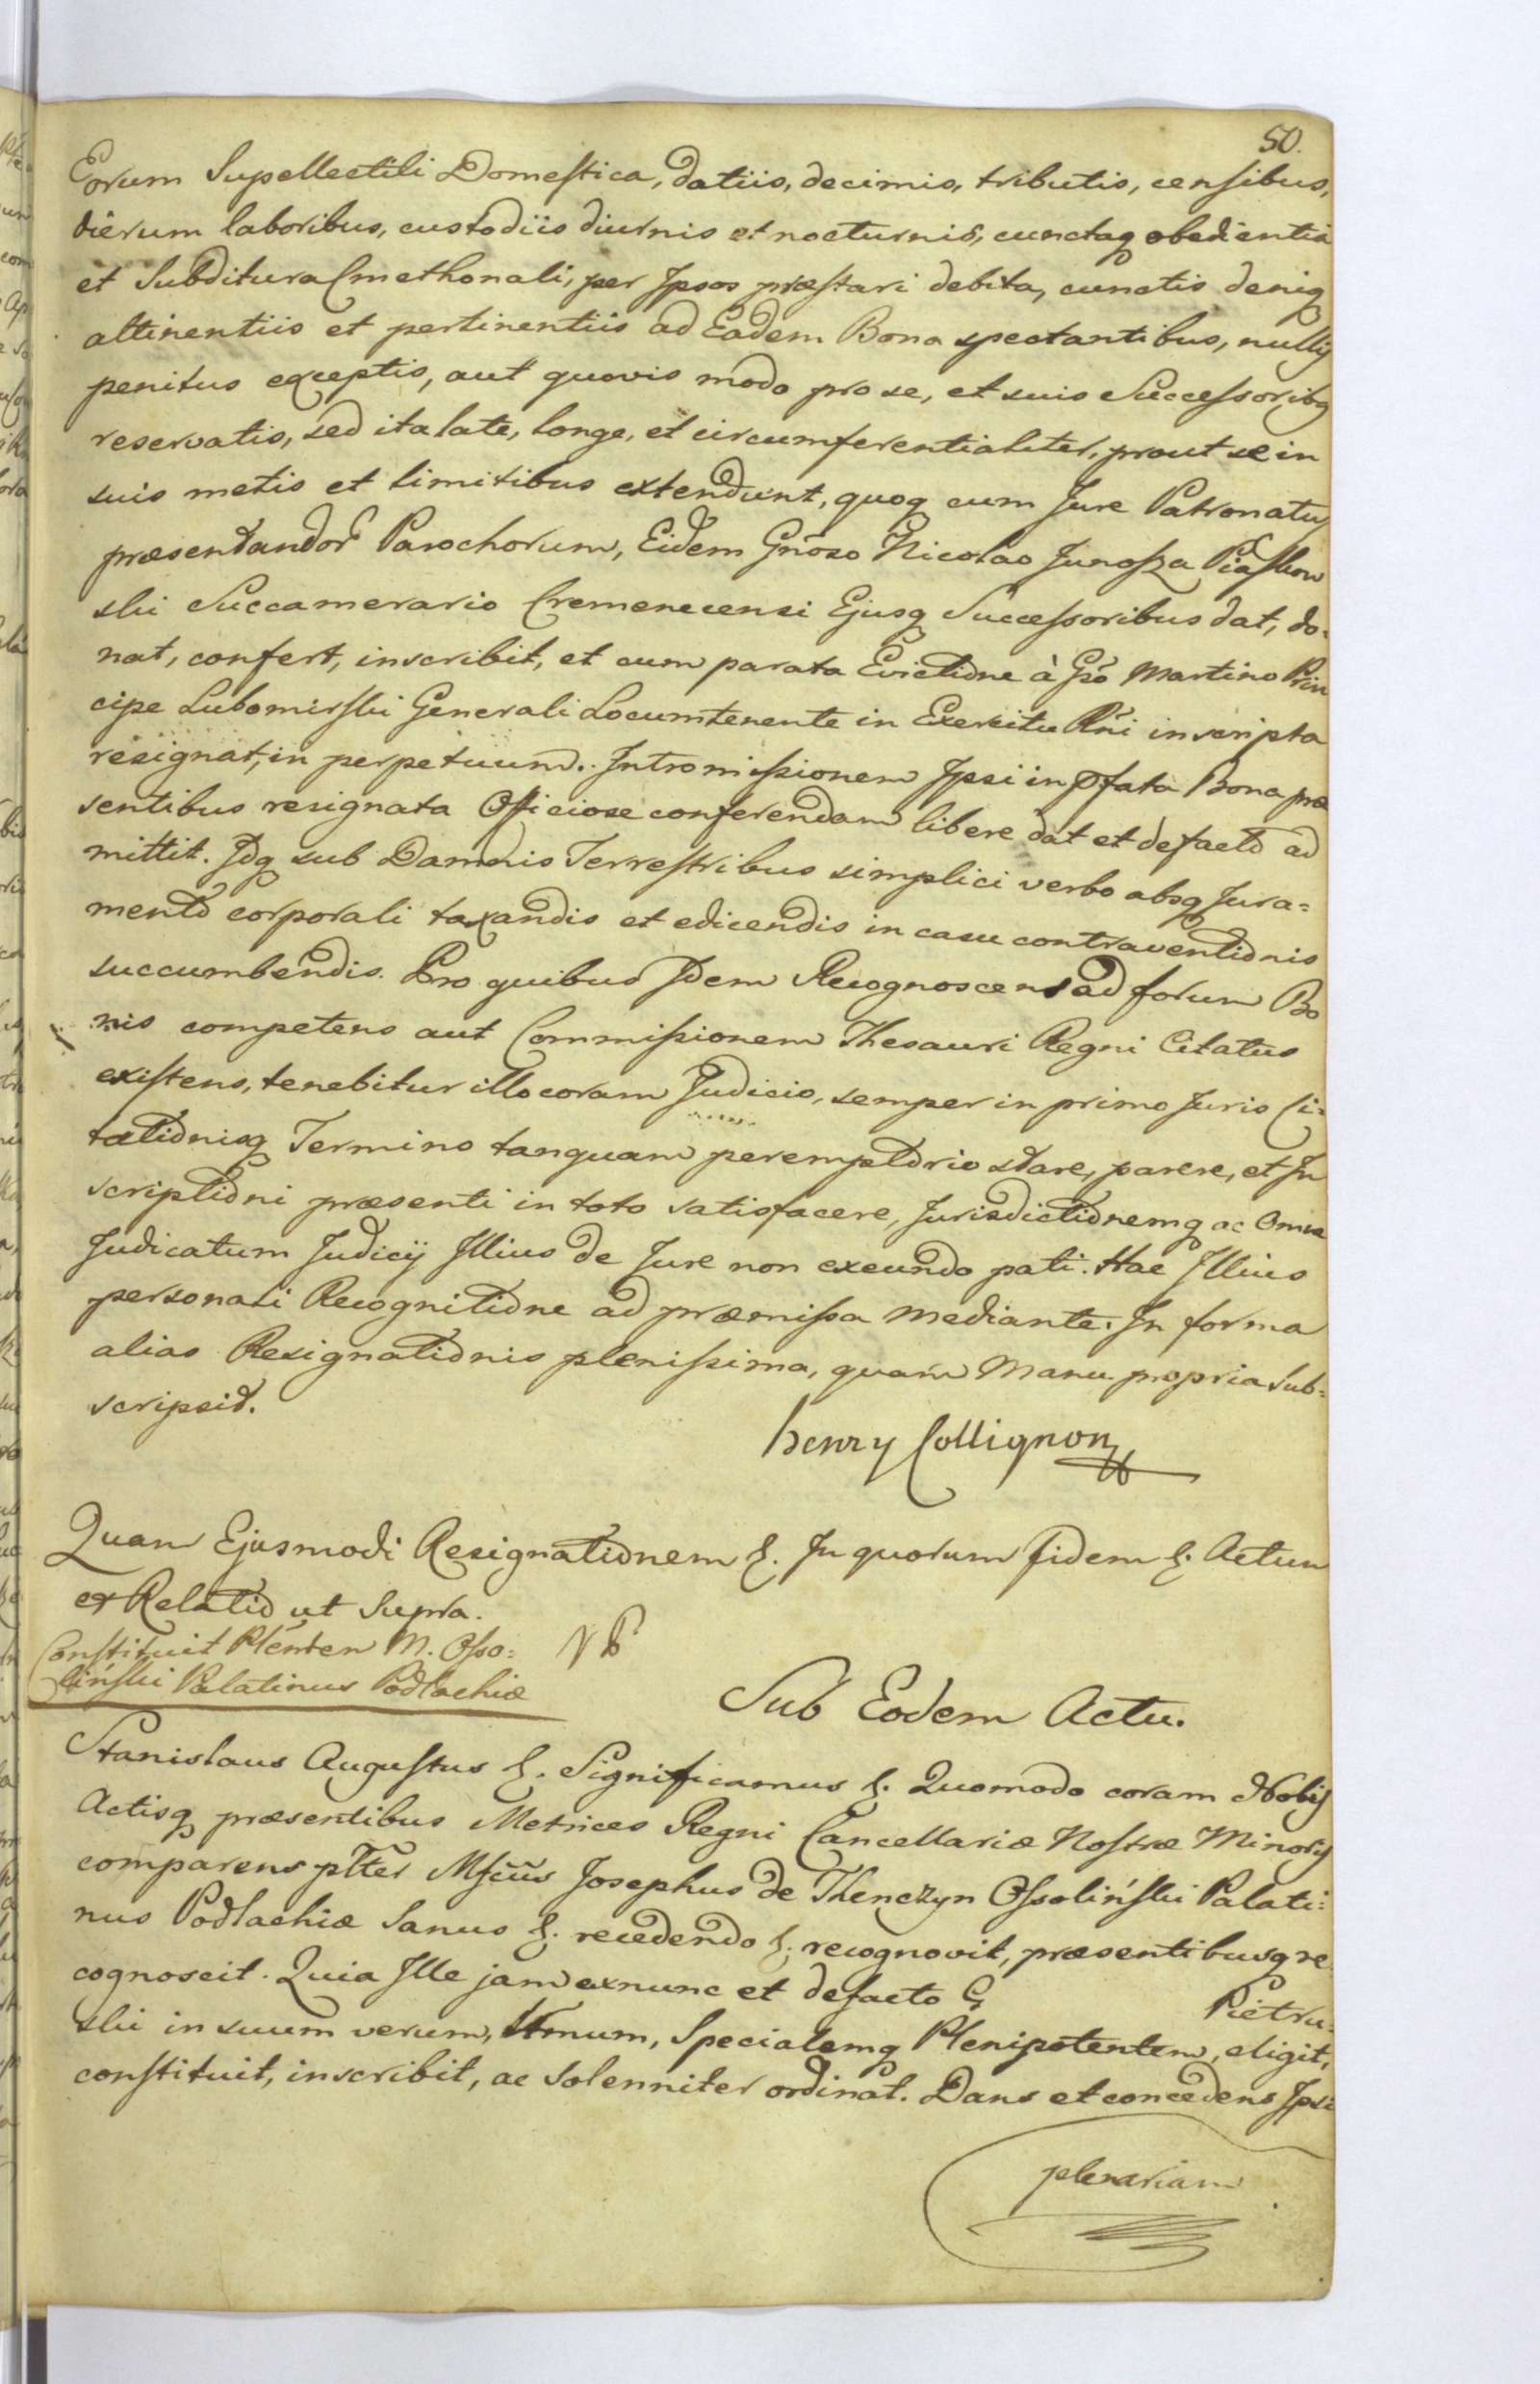 50.
Eorum Supellectili Domestica, datiis, decimis, tributis, censibus,
dierum laboribus, custodiis diurnis et nocturnis, cunctaq obedientia
et Subditura Cmethonali, per Ipsos præstari debita, cunctis deniq
attinentiis et pertinentiis ad Eadem Bona spectantibus, nullis
penitus exceptis, aut quovis modo pro se, et suis Successoribq
reservatis, sed ita late, longe, et circumferentialiter, prout se in
suis metis et limitibus extendunt, quoq cum Jure Patronatus
præsentandor Parochorum, Eidem Gnoso Nicolao Junosza Piaskow
ski Succamerario Cremenecensi Ejusq Successoribus dat, do-
nat, confert, inscribit, et cum parata Evictione à Gso Martino Prin
cipe Lubomirski Generali Locumtenente in Exercitu Rni inscripta
resignat, in perpetuum. Intromissionem Ipsi in pfata Bona præ
sentibus resignata Officiose conferendam libere dat et defacto ad
mittit. Idq sub Damnis Terrestribus simplici verbo absq Jura=
mento corporali taxandis et edicendis in casu contraventionis
succumbendis. Pro quibus Idem Recognoscens ad forum Bo
nis competens aut Commissionem Thesauri Regni Citatus
existens, tenebitur illo coram Judicio, semper in primo Juris Ci=
tationisq Termino tanquam peremptorio stare, parere, et In
scriptioni præsenti in toto satisfacere, Jurisdictionemq ac Omne
Judicatum Judicij Illius de Jure non exeundo pati. Hac Illius
personali Recognitione ad præmissa mediante. In forma
alias Resignationis plenissima, quam Manu propria sub=
scripsit.
henry Collignon
Quam Ejusmodi Resignationem &. In quorum fidem &. Actum
ex Relatio ut Supra.
Constituit Plenten M. Osso=
liński Palatinus Podlachiæ
Sub Eodem Actu.
Stanislaus Augustus &. Significamus &. Quomodo coram Nobis
Actisq præsentibus Metrices Regni Cancellariæ Nostræ Minoris
comparens plter Mfcus Josephus de Thenczyn Ossoliński Palati=
nus Podlachiæ Sanus &. recedendo &. recognovit, præsentibusq re
cognoscit. Quia Ille jam exnunc et defacto G Pietru=
ski in suum verum, Ltmum, Specialemq Plenipotentem, eligit,
constituit, inscribit, ac solenniter ordinat. Dans et concedens Ipsi
plenariam